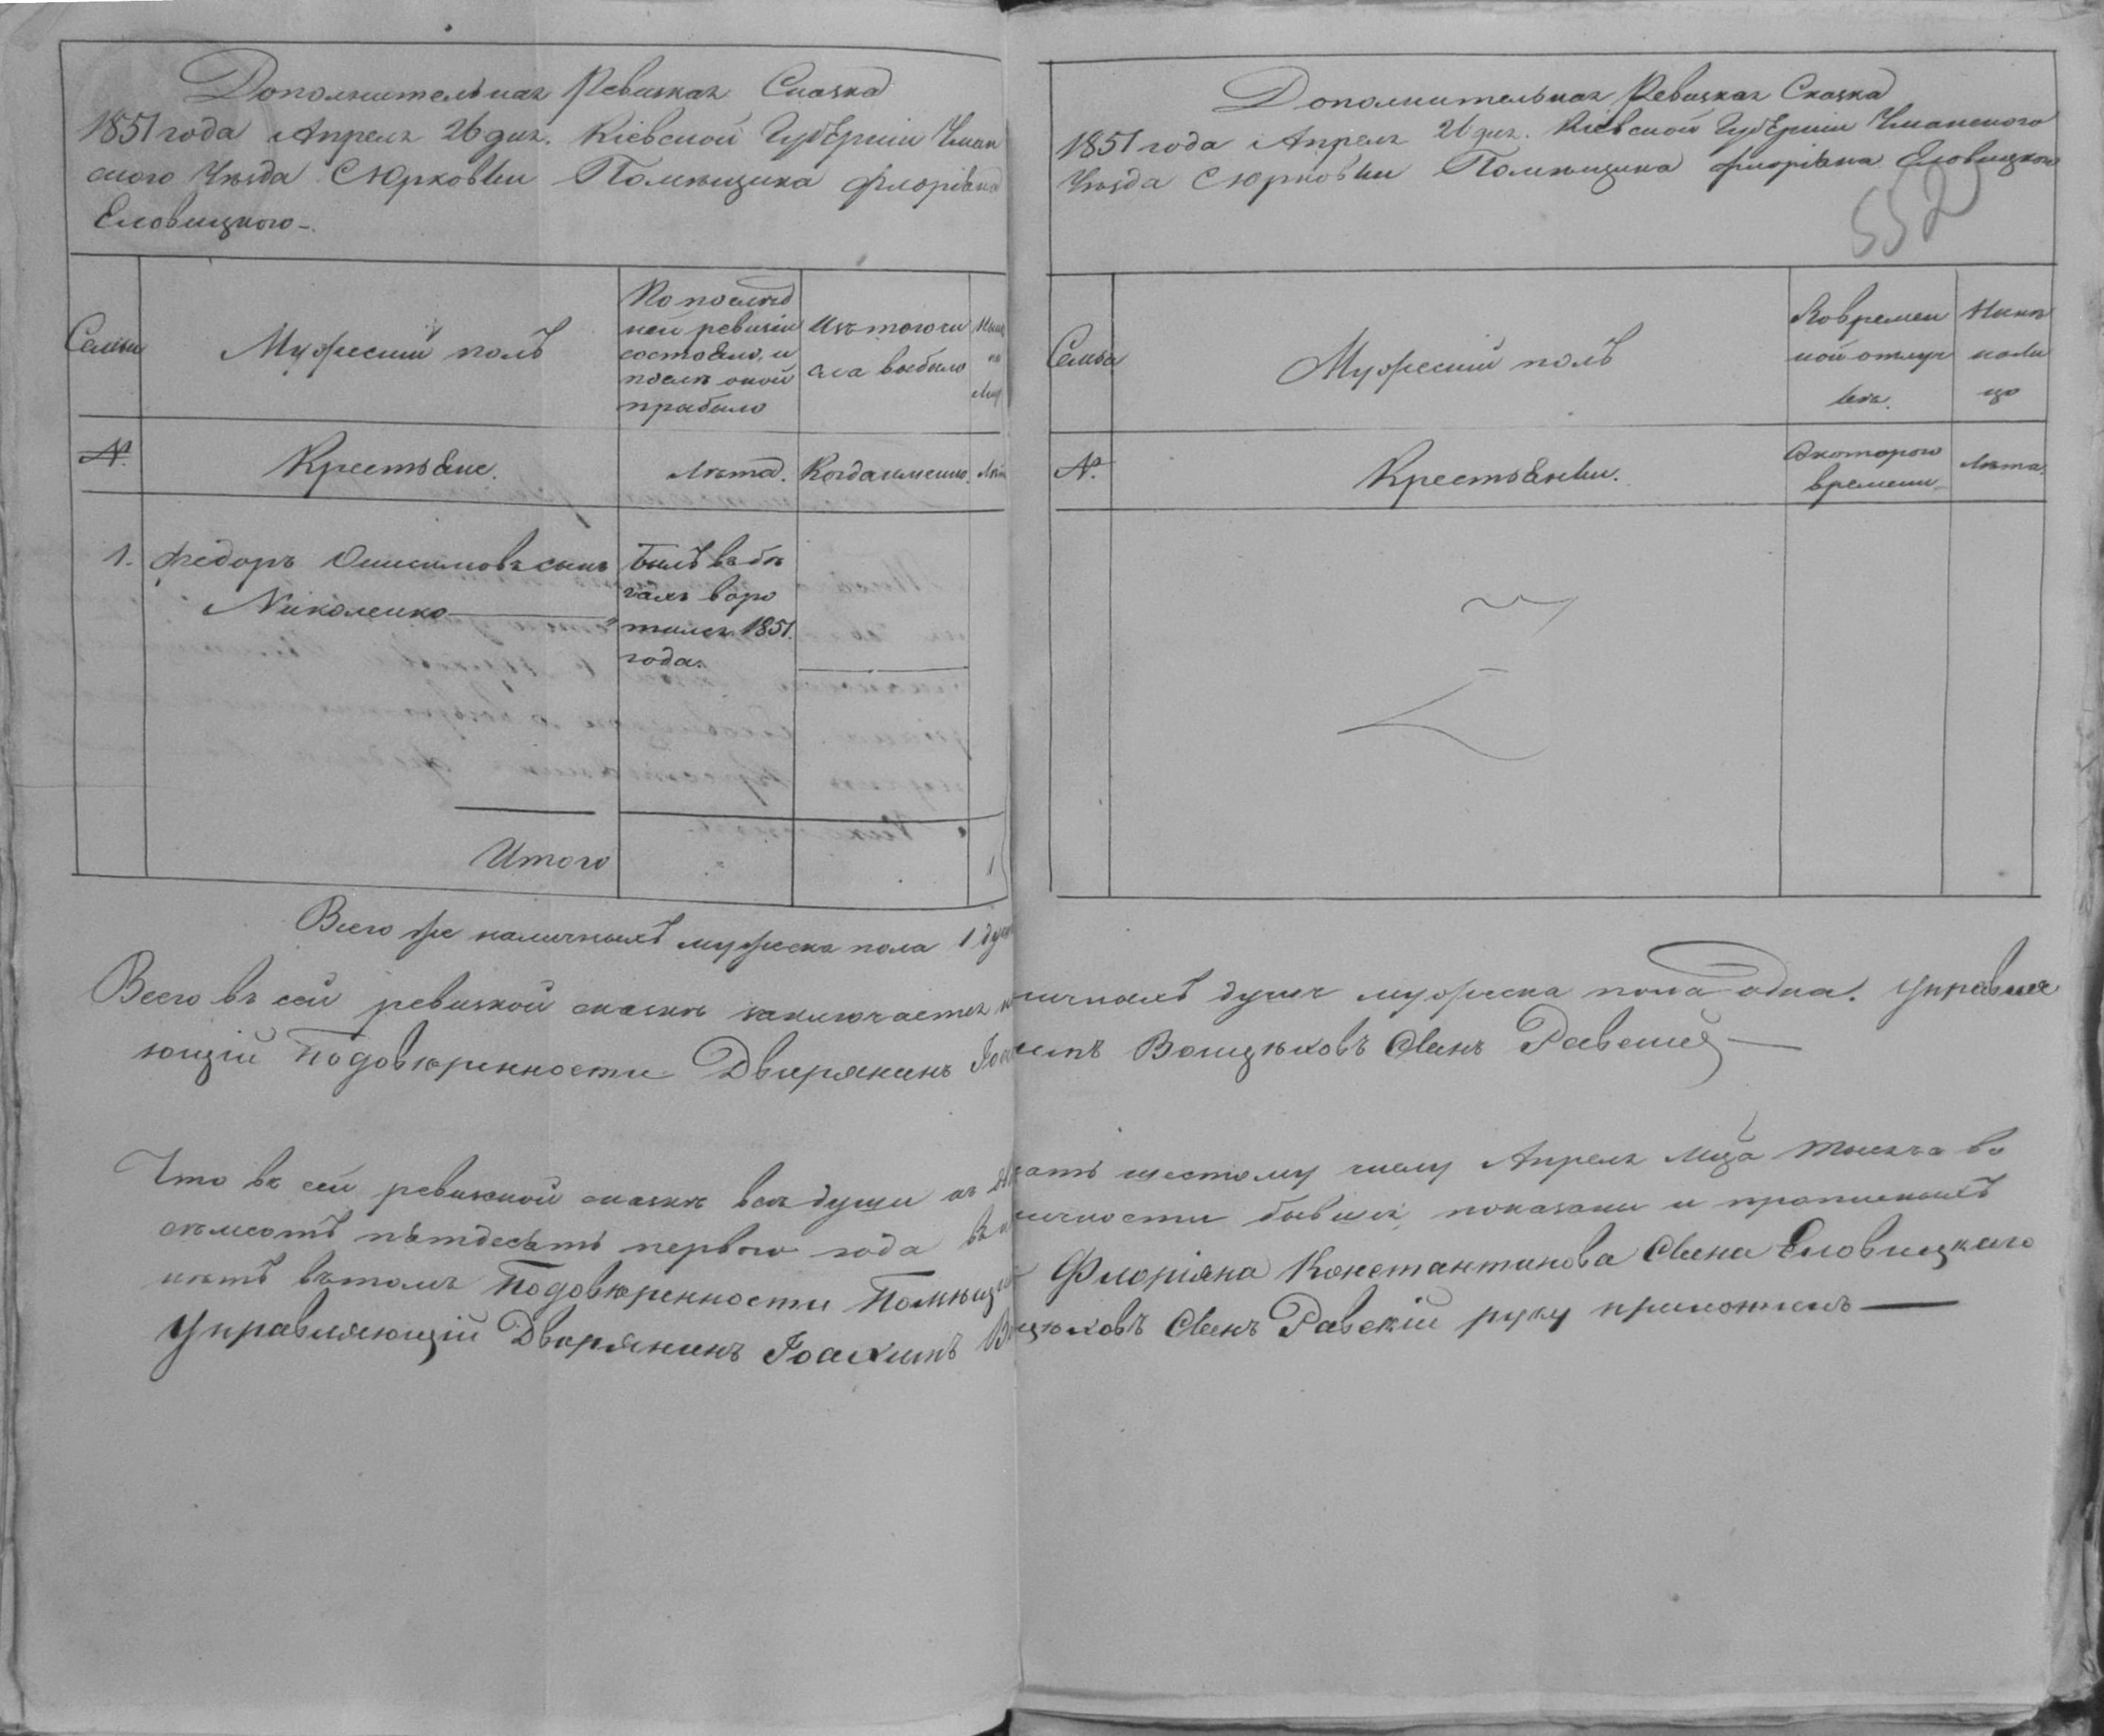 Дополнительная Ревизкая Сказка
1851 года Апреля 26 дня. Кіевской Губерніи Уман
ского Уѣзда С Юрковки Помѣщика Флоріана
Еловицкого
Семьи
Мужеский полъ
По послѣд
ней ревизіи
состояло, и
послѣ оной
прибыло
Изъ того чи
сла выбыло
№.
Крестьяне.
Лѣта.
Когда именно.
1. Федоръ Онисимовъ сынъ
Николенко
Былъ въ бѣ
гахъ воро
тился 1851.
года.
Итого
1
Всего же наличныхъ мужеска пола 1
Дополнительная Ревизкая Сказка
1851 года Апреля 26 дня. Кіевской Губерніи Уманского
Уѣзда С Юрковки Помѣщика Флоріана Еловицкого
552
Семья
Мужеский полъ
Во времен
ной отлуч
ке.
Нынѣ
на ли
цо
№.
Крестьянки.
С котораго
времени
Лѣта.
Всего въ сей ревизкой сказкѣ заключается наличныхъ душъ мужеска пола одна. Управля
ющій По довѣренности Дворянинъ Іоахимъ Сынъ Равский
Что въ сей ревизкой сказкѣ всѣ души къ двадцать шестому числу Апреля Мца тысяча во
семсотъ пятдесятъ первого года въ наличности бывшія, показаны и прописныхъ
нѣтъ въ томъ По довѣренности Помѣщика Флоріяна Константинова Сына Еловицкаго
Управляющій Дворянинъ Іоахимъ Сынъ Равскій руку приложилъ